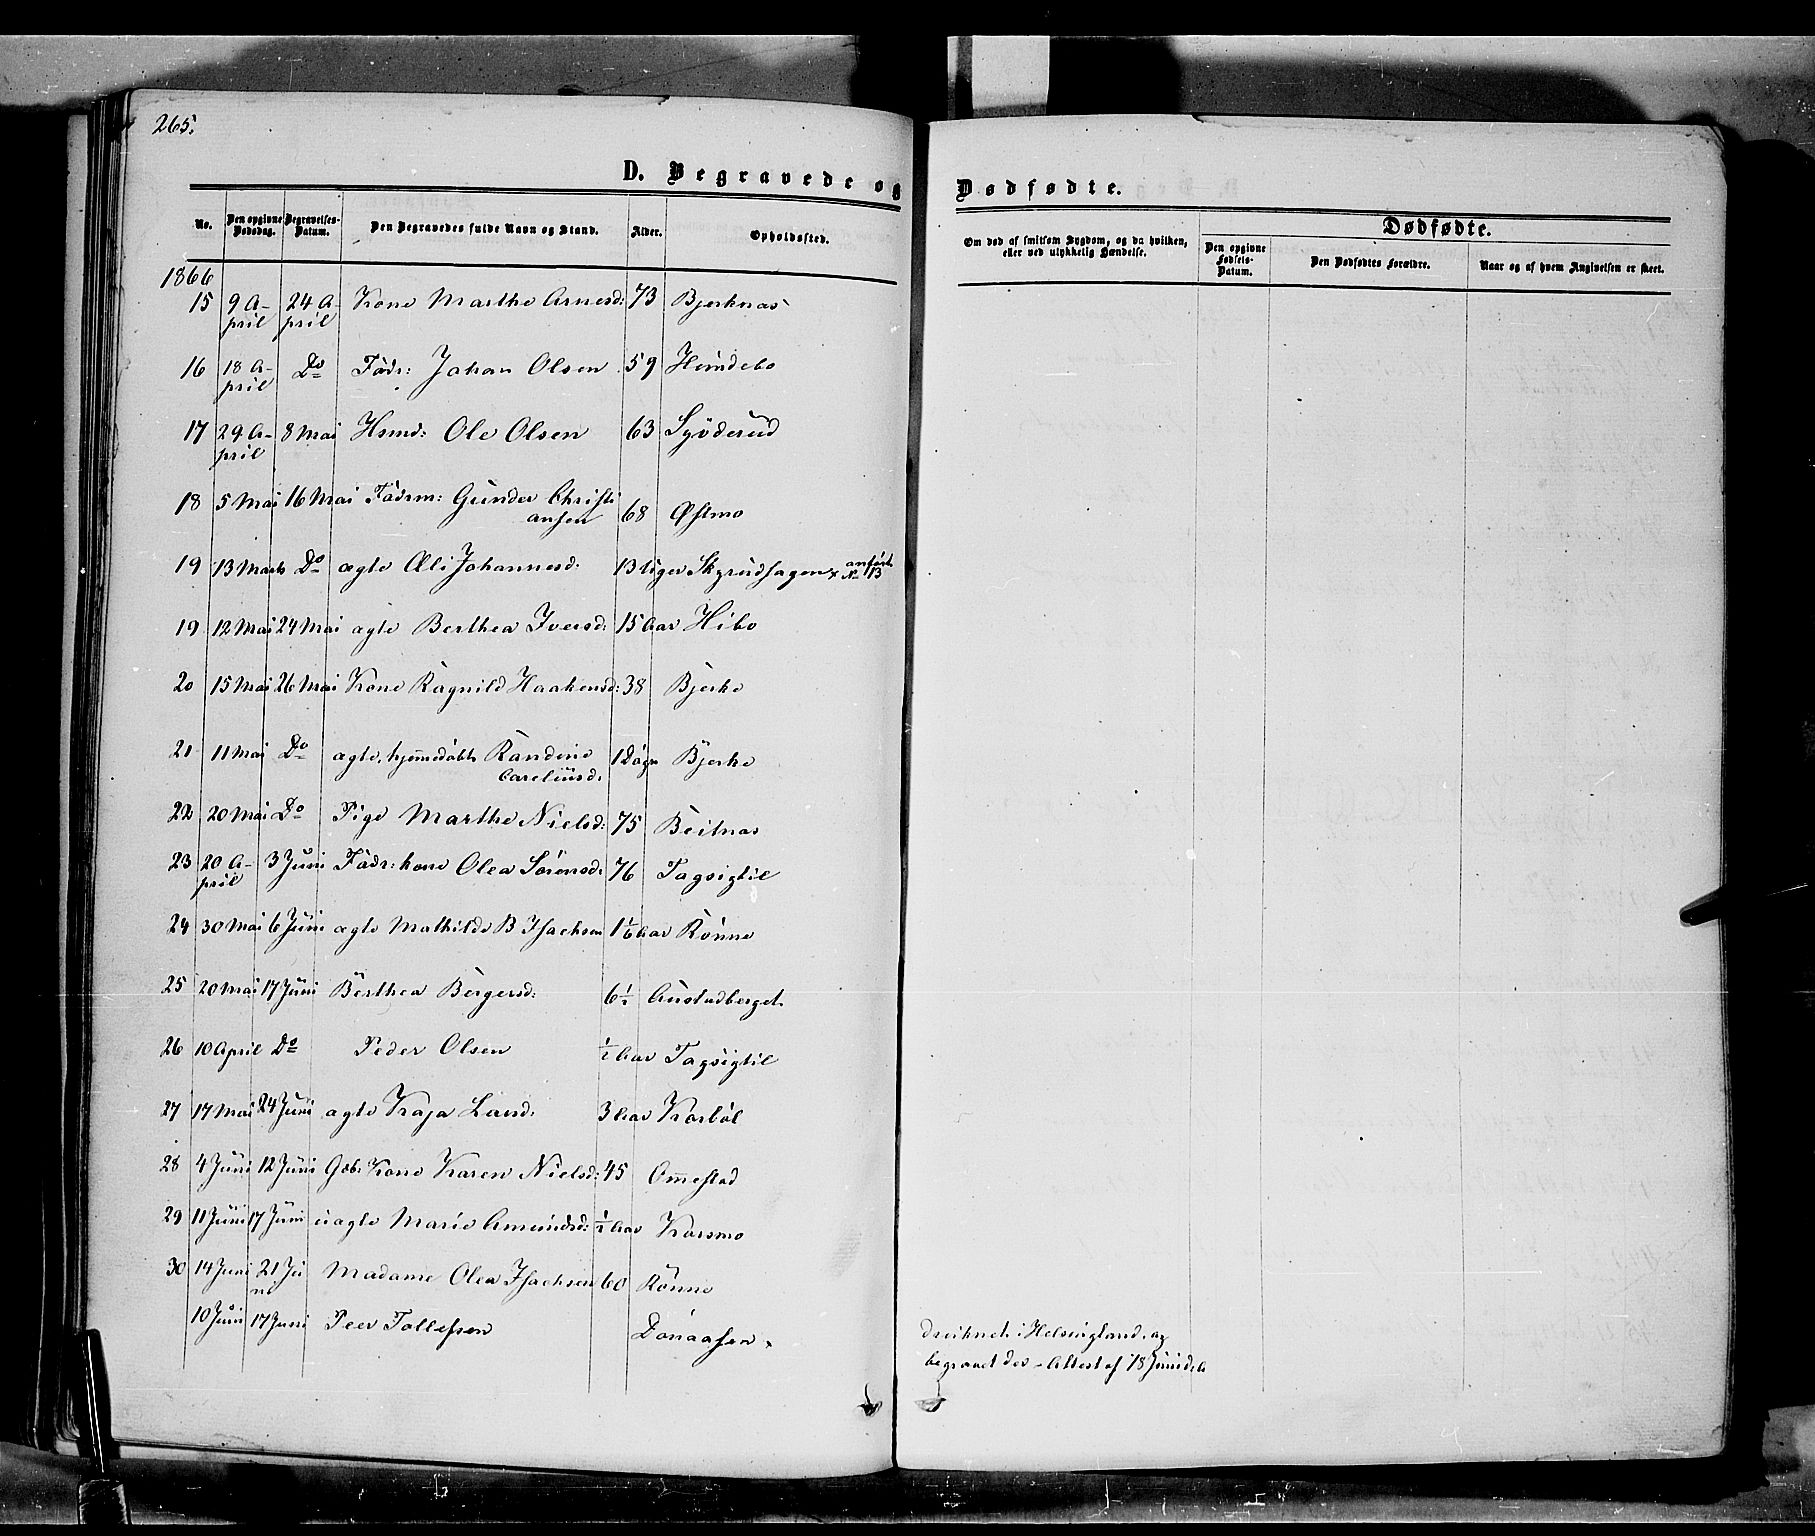 265.
D. Begravede og Dødfødte.
No. Den opgivne Dødsdag. Begravelses-Datum. Den Begravedes fulde Navn og Stand. Alder. Opholdssted. Om død af smitsom Sygdom, og da hvilken, eller ved ulykkelig Hændelse. Dødfødte. Den opgivne Fødsels-Datum. Den Dødfødtes Forældre. Naar og af hvem Angivelsen er skeet.
1866
15 9 April 24 April Kone Marthe Arnesd: 73 Bjerknæs
16 18 April Do Födr: Johan Olsen 59 Heimdebo
17 29 April 8 Mai Hsmd: Ole Olsen 63 Syvderud
18 5 Mai 16 Mai Födrm: Gunder Christiansen 68 Østmo
19 13 Marts Do ægte Oli Johannesd: 13 Uger Skyrudhagen × anført No 13
19 12 Mai 24 Mai ægte Berthea Iversd: 15 Aar Hibo
20 15 Mai 26 Mai Kone Ragnild Haakensd: 38 Bjerke
21 11 Mai Do ægte, hjemmedöbt Randine Careliusd. 1 Døgn Bjerke
22 20 Mai Do Pige Marthe Nielsd: 75 Beitnæs
23 20 April 3 Juni Födr: kone Olea Sörensd: 76 Tagsigtil
24 30 Mai 6 Juni ægte Mathilde B Isachsen 1 1/6 Aar Rönne
25 20 Mai 17 Juni Berthea Børgersd: 6 1/2 Austadberget
26 10 April Do Peder Olsen 1/2 Aar Tagsigtil
27 17 Mai 24 Juni ægte Kaja Larsd: 3 Aar Korböl
28 4 Juni 12 Juni Gbr. Kone Karen Nielsd: 45 Ommestad
29 11 Juni 17 Juni uægte Marie Amundsd: 1/2 Aar Korsmo
30 14 Juni 21 Juni Madame Olea Isachsen 60 Rönne
10 Juni 17 Juni Peer Tollefsen Dönaasen × druknet i Helsingland, og
begravet der – Attest af 18 Juni